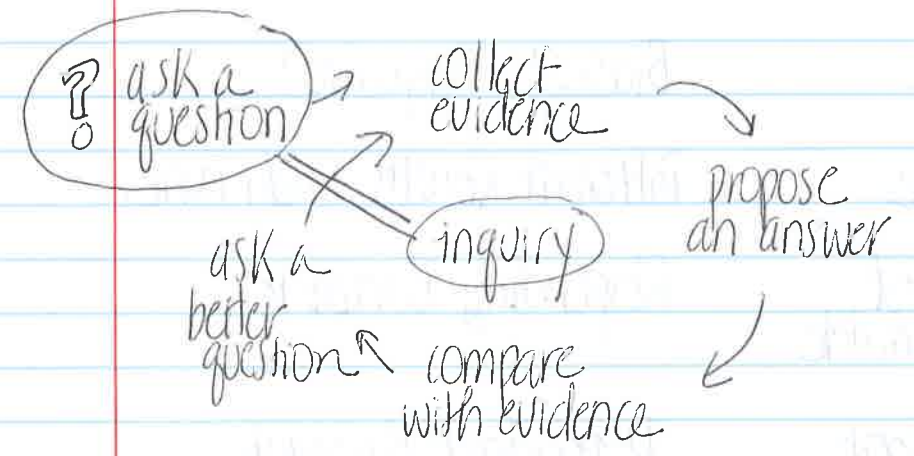 ? ask a
question
collect
evidence
propose
an answer
inquiry
ask a
better
question
compare
with evidence